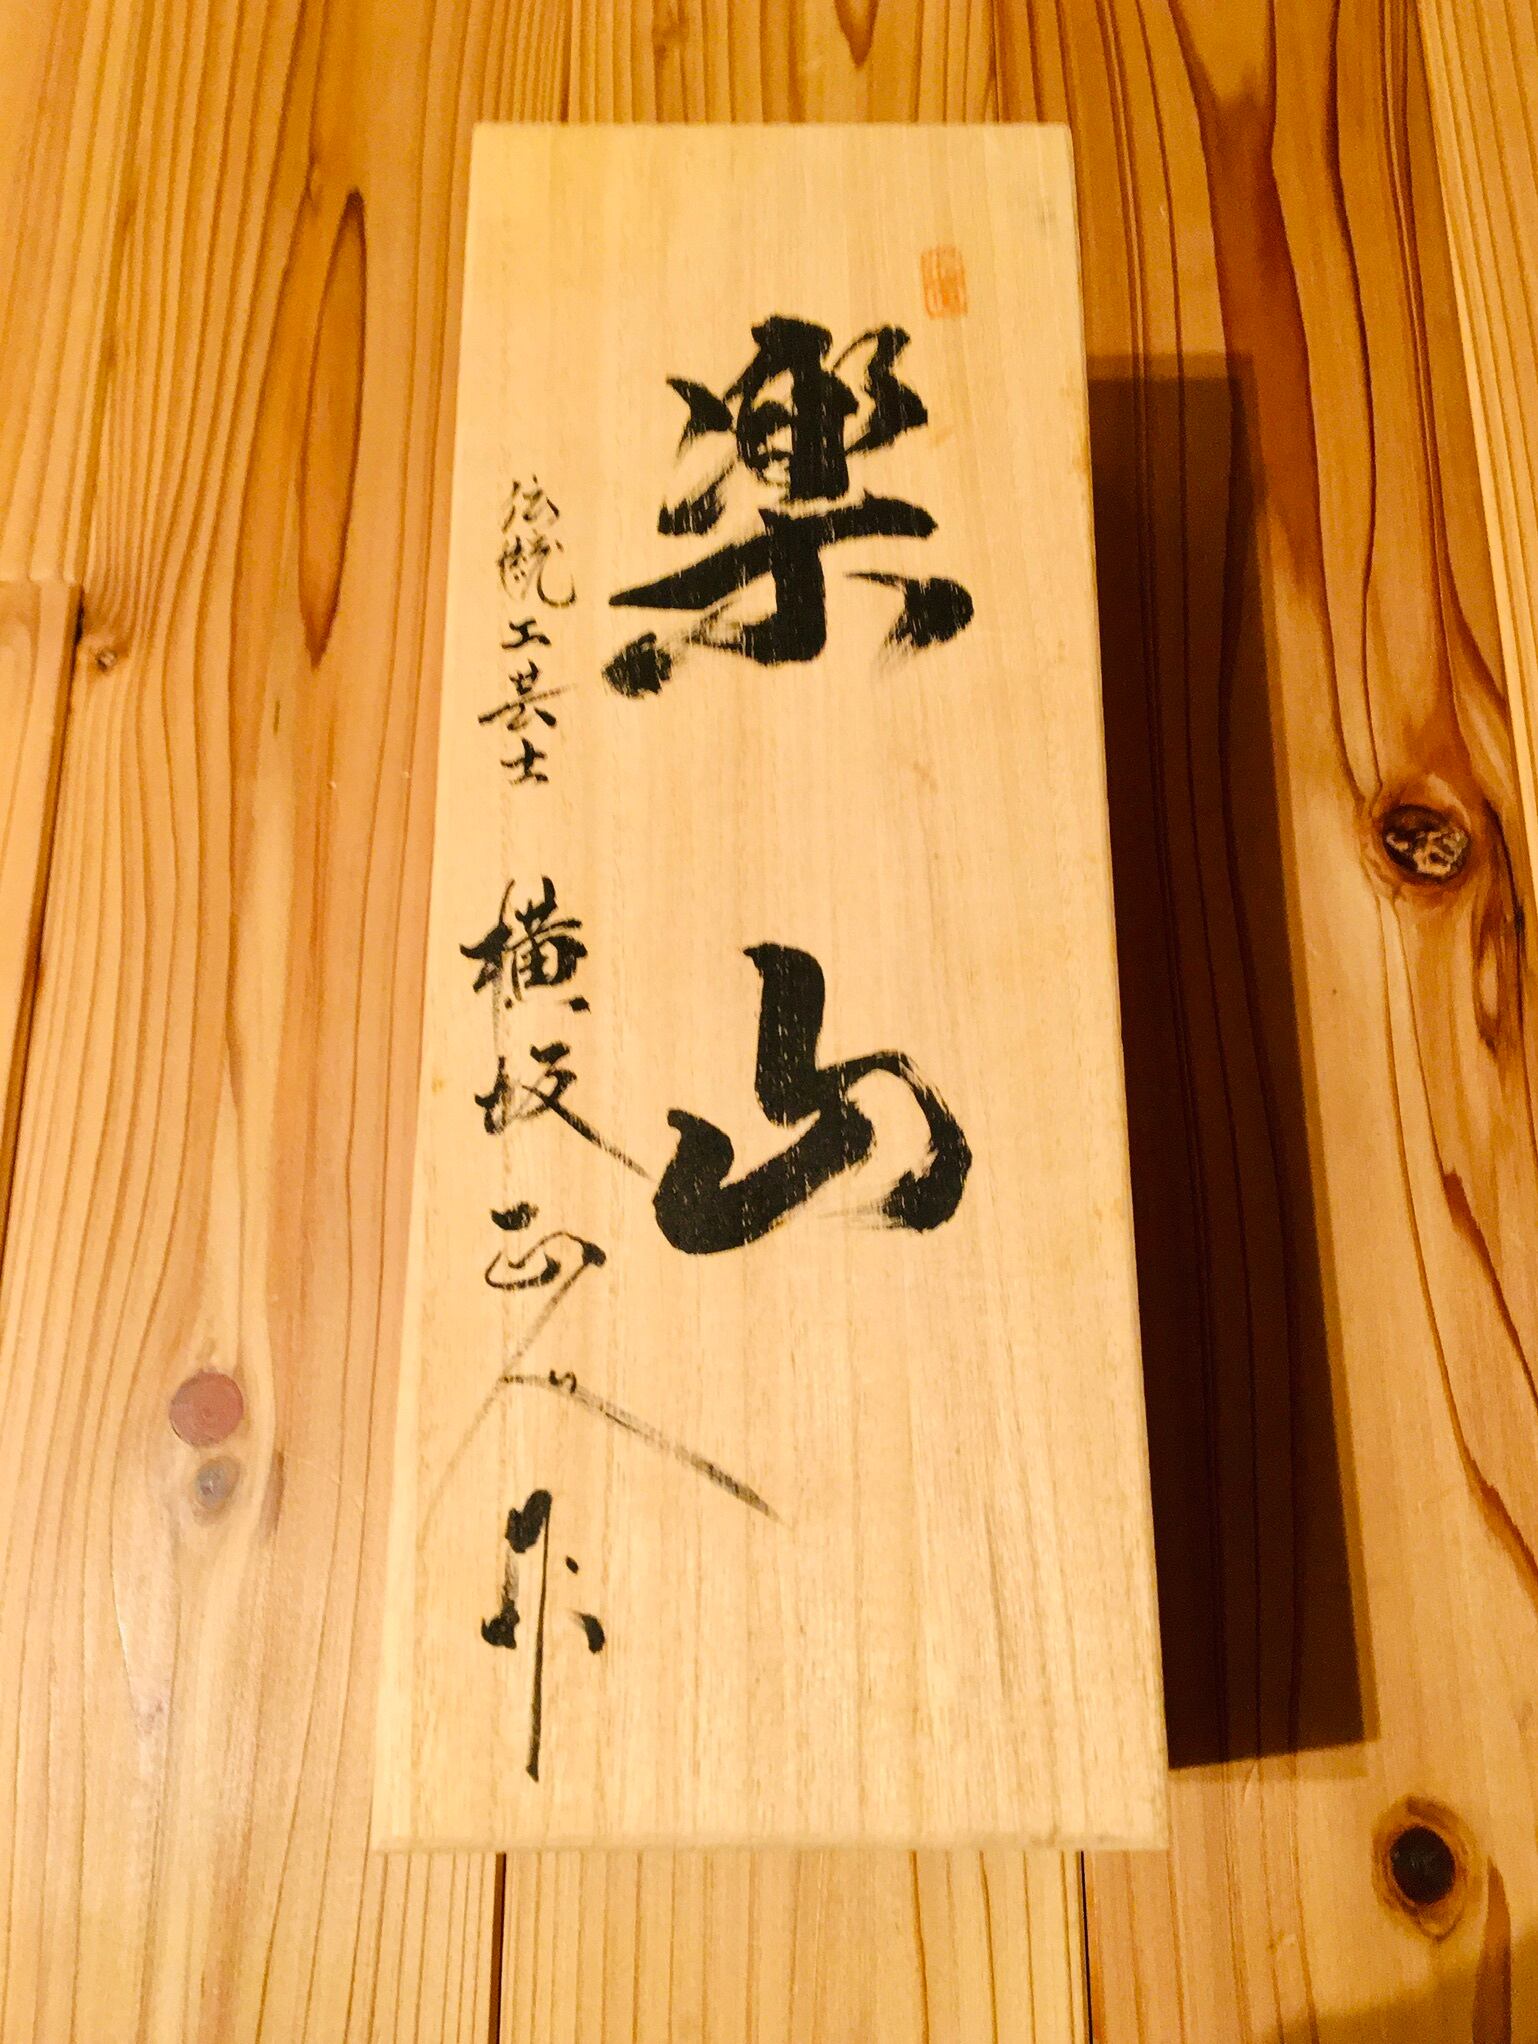 楽山
伝統工芸士 横坂正人作